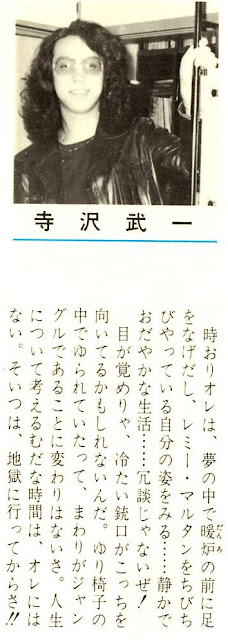 寺沢武一
　時おりオレは、夢の中で暖炉(だんろ)の前に足
をなげだし、レミー・マルタンをちびち
びやっている自分の姿をみる……静かで
おだやかな生活……冗談じゃないぜ！
　目が覚めりゃ、冷たい銃口がこっちを
向いてるかもしれないんだ。ゆり椅子の
中でゆられていたって、まわりがジャン
グルであることに変わりはないさ。人生
について考えるむだな時間は、オレには
ない。そいつは、地獄に行ってからさ!!